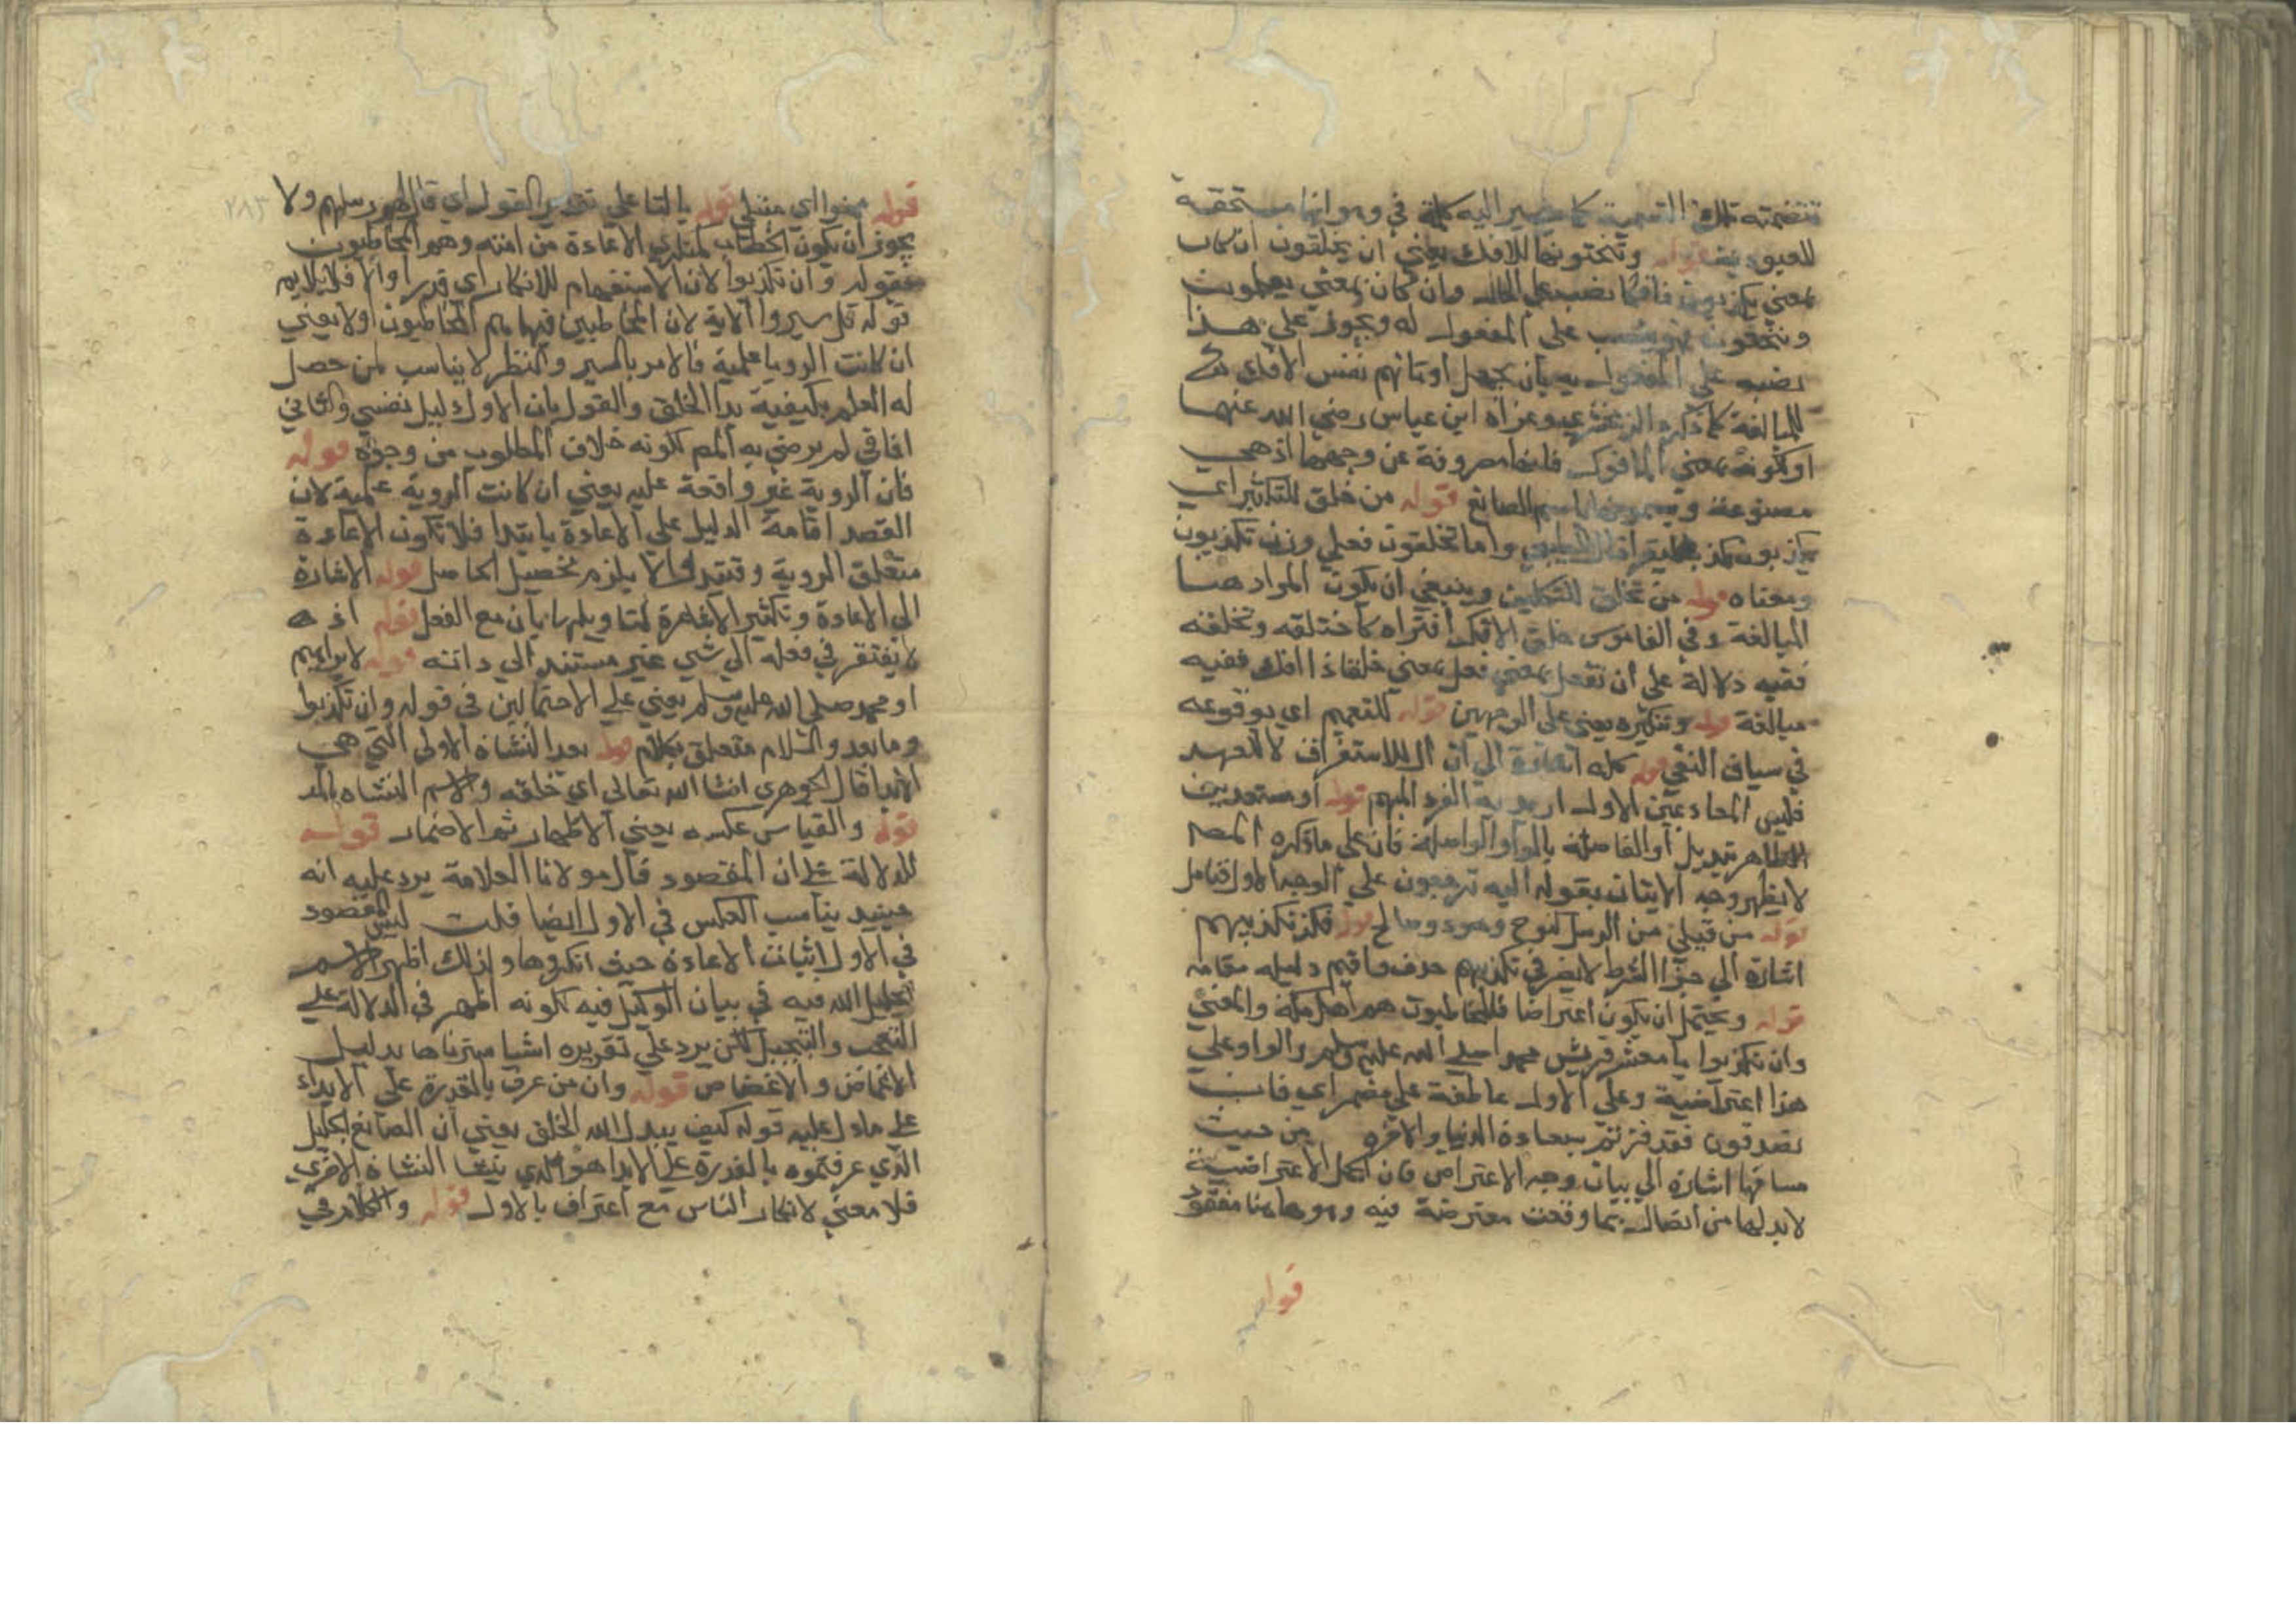 تتضمنه تلك التسمية كما يشير اليه كلمة في وهو انها مستحقة
للعبودية قوله وتنحتونها للافك يعني ان يخلقون ان كان
بمعني يكذبون فافكا نصب علي الحال وان كان بمعني يعملون
وينحتون فهو نصب علي المفعول له ويجوز علي هذا
نصبه علي المفعول به بان يجعل اوثانهم نفس الافك
للمبالغة كما ذكره الزمخشري وعزاه ابن عباس رضي الله عنهما
او كونه بمعني المافوك فانها مصروفة عن وجهها اذ هي
مصنوعة ويسمونها باسم الصانع قوله من خلق للتكثير اي
واما تخلقون فعلي وزن تكذبون
ومعناه قوله من تخلق للتكلف وينبغي ان يكون المراد هنا
المبالغة وفي القاموس خلق الافك افتراه كاختلقه وتخلقه
ففيه دلالة علي ان تفعل بمعني فعل بمعني خلقاذا افك ففيه
مبالغة قوله وتنكيره يعني علي الوجهين قوله للتعميم اي بوقوعه
في سياق النفي قوله كله اشارة الي ان ال للاستغراق لا للعهد
فليس المعاد عين الاول اريد به الفرد المبهم قوله او مستعدين
الظاهر تبديل او الفاصلة بالواو الواصلة فان علي ما ذكره المص
لا يظهر وجه الاتيان بقوله اليه ترجعون علي الوجه الاول فتامل
قوله من قبلي من الرسل كنوح وهود وصالح قوله فكذ تكذيبهم
اشارة الي جزا الشرط لا يضر في تكذيبهم حذف واقيم دليله مقامه
قوله ويحتمل ان يكون اعتراضا فالمخاطبون هم اهل مكة والمعني
وان تكذبوا يا معشر قريش محمدا صلي الله عليه وسلم والواو علي
هذا اعتراضية وعلي الاول عاطفة علي مضمر اي فان
تصدقون فقد فزتم بسعادة الدنيا والاخره من حيث
مساقها اشارة الي بيان وجه الاعتراض فان الجمل الاعتراضية
لابد لها من اتصال بما وقعت معترضة فيه وهو هاهنا مفقود
قوله
٢٨٣
قوله محذوا اي مثلي قوله بالتا علي تقدير القول اي قال لهم رسلهم ولا
يجوز ان يكون الخطاب لمنكري الاعادة من امته وهم المخاطبون
بقوله وان تكذبوا لان الاستفهام للانكار اي قد راوا والا فلا يلايم
قوله قل سيروا الاية لان المخاطبين فيها هم المخاطبون اولا يعني
ان كانت الرويا علمية فالامر بالسير والنظر لا يناسب لمن حصل
له العلم بكيفية بدا الخلق والقول بان الاول دليل نفسي والثاني
افاقي لم يرضي به المص لكونه خلاف المطلوب من وجوه قوله
فان الروية غير واقعة عليه يعني ان كانت الروية علمية لان
القصد اقامة الدليل علي الاعادة بابتدا فلا تكون الاعادة
متعلق الروية وقتئذ لا يلزم تحصيل الحاصل قوله الاشارة
الي الاعادة وتكثير الاشارة لتاويلها بان مع الفعل قوله اذ هه
لا يفتقر في فعله الي شي غير مستند الي ذاته قوله لابراهيم
او محمد صلي الله عليه وسلم يعني علي الاحتمالين في قوله وان تكذبوا
وما بعد والكلام متعلق بكلام قوله بعد النشاة الاولي التي هي
الابدا قال الجوهري انشا الله تعالي اي خلقه والاسم النشاه بالمد
قوله والقياس عكسه يعني الاظهار ثم الاضمار قوله
للدلالة علي ان المقصود قال مولانا العلامة يرد عليه انه
حينيذ يناسب العكس في الاول ايضا قلت ليس المقصود
في الاول اثبات الاعادة حيث انكروها ولذلك اظهر الاسم
الجليل الله فيه في بيان الوكيل فيه لكونه اظهر في الدلالة علي
التعجب والتعجيل لكن يرد علي تقريره اشيا ميزناها بدليل
الاغماض والاغضاض قوله وان من عرف بالقدرة علي الابداء
علي ما دل عليه قوله كيف يبدا الله الخلق يعني ان الصانع الجليل
الذي عرفتموه بالقدرة علي الابدا هو الذي ينشا النشاة الاخري
فلا معني لانكار الناس مع اعتراف بالاول قوله والكلام في